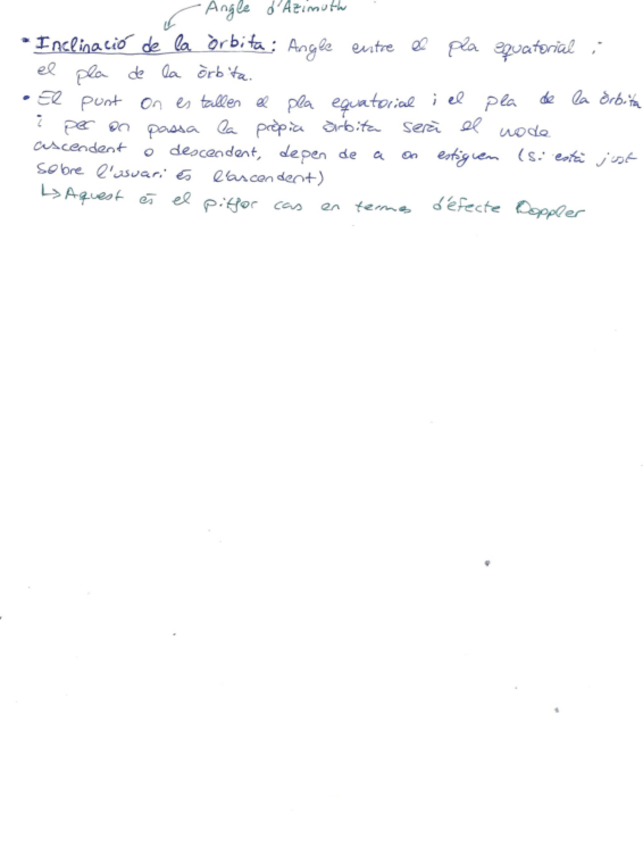 Angle d'Azimuth
• Inclinació de la òrbita: Angle entre el pla equatorial i
el pla de la òrbita.
• El punt on es tallen el pla equatorial i el pla de la òrbita
i per on passa la pròpia òrbita serà el node
ascendent o descendent, depen de a on estiguem (si està just
sobre l'usuari és l'ascendent)
↳ Aquest és el pitjor cas en termes d'efecte Doppler